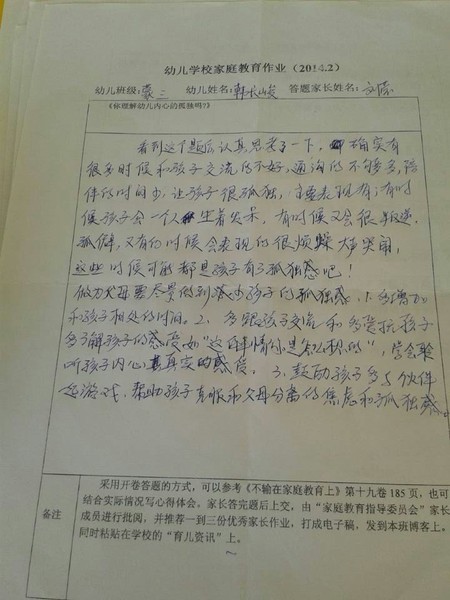 幼儿学校家庭教育作业（2014.2）
幼儿班级：蒙三 幼儿姓名：韩长峻 答题家长姓名：
《你理解幼儿内心的孤独吗？》
看到这个题后认真思考了一下，确实有
很多时候和孩子交流的不好，沟通的不够多，陪
伴的时间少，让孩子很孤独，主要表现有：有时
候孩子会一个人坐着发呆，有时候又会很叛逆，
孤僻，又有的时候会表现的很烦燥大声哭闹，
这些时候可能都是孩子有了孤独感吧！
做为父母要尽量的到孩子的孤独感，1.多增加
和孩子相处的时间。2、多跟孩子交流和多爱抚孩子
多了解孩子的感受如“这的事情你是怎么想的”，学会聆
听孩子内心真实的感受，3、鼓励孩子多与伙伴
起游戏，帮助孩子克服和父母分离的焦虑和孤独感。
备注
采用开卷答题的方式，可以参考《不输在家庭教育上》第十九卷185页，也可
结合实际情况写心得体会。家长答完题后上交，由“家庭教育指导委员会”家长
成员进行批阅，并推荐一到三份优秀家长作业，打成电子稿，发到本班博客上。
同时粘贴在学校的“育儿资讯”上。